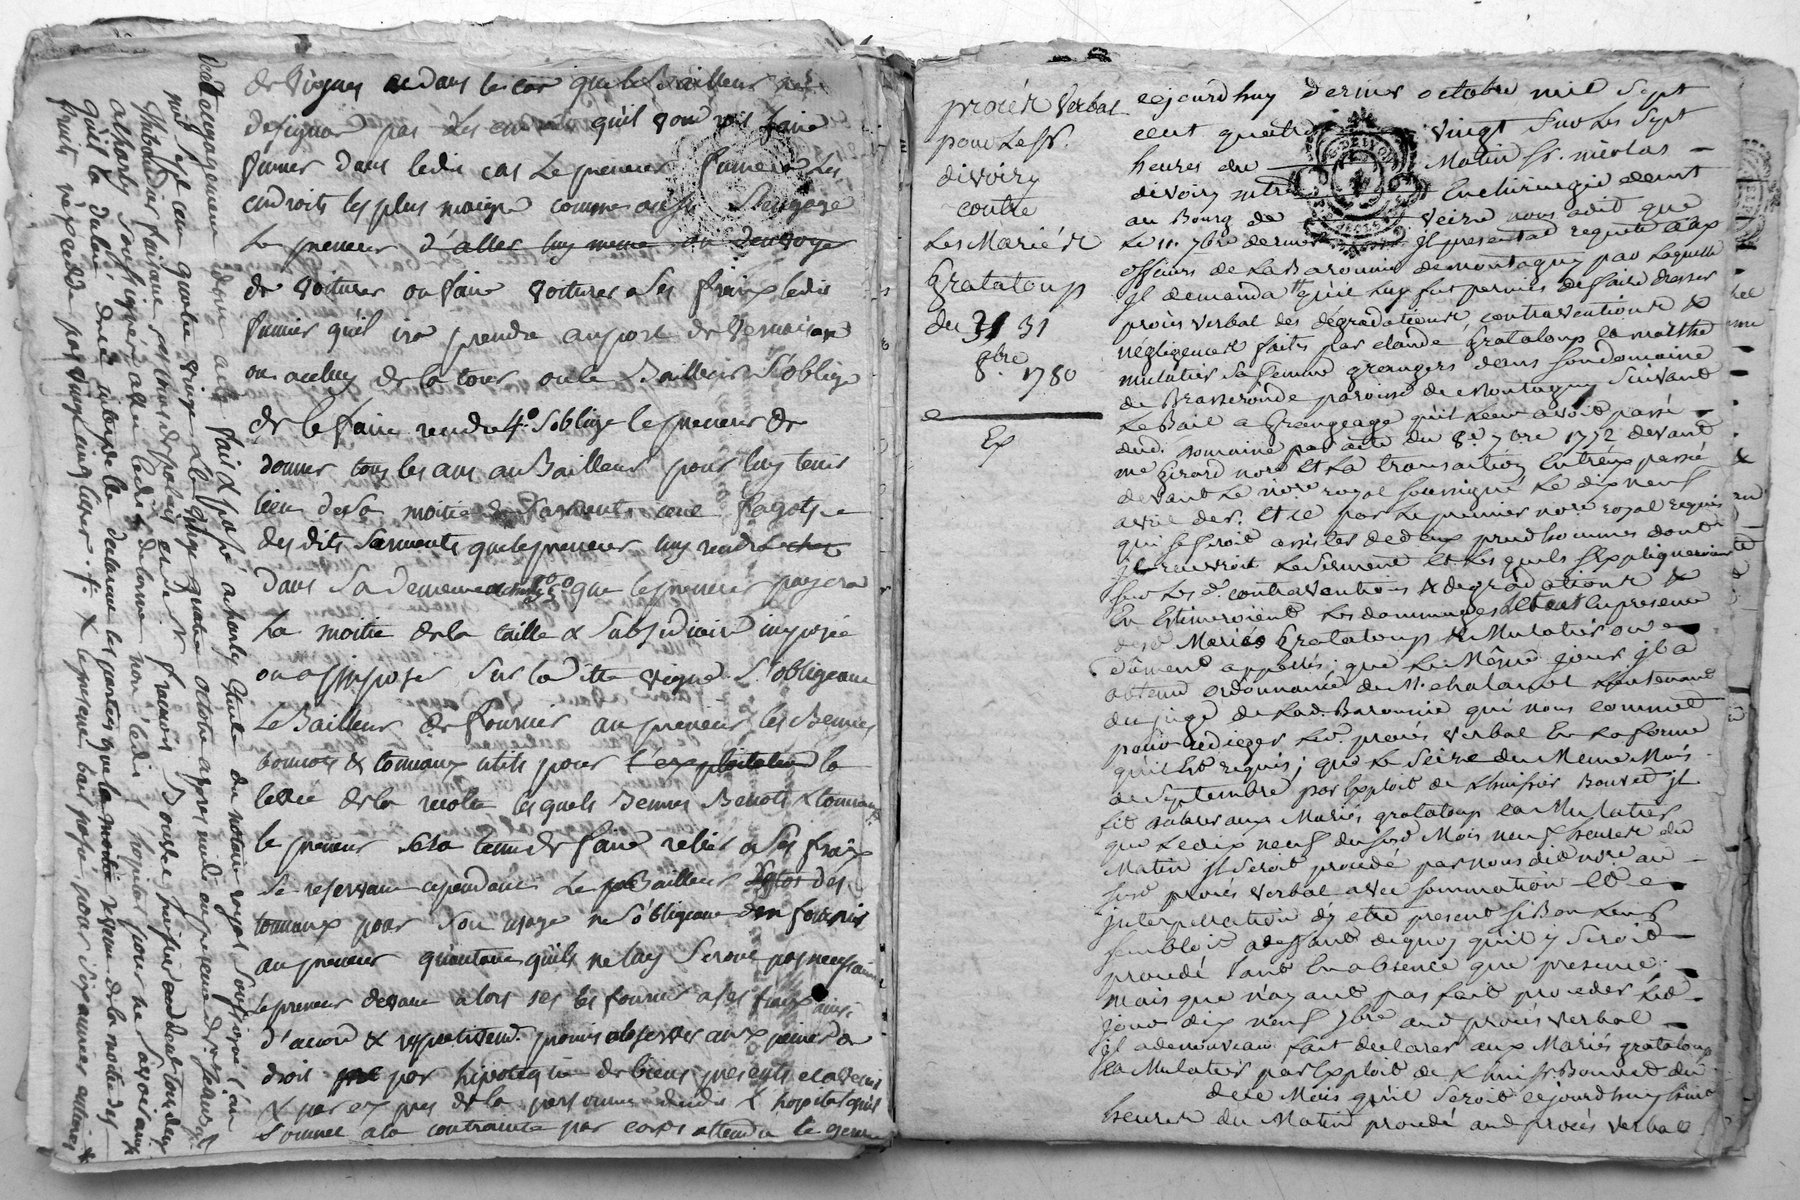 de vignes et dans le cas que le Bailleur ne
designat pas les endroits qu'il voudroit faire
fumer dans ledit cas le preneur fumera les
endroits les plus maigre comme aussi S'engage
Le preneur d'aller luy meme ou d'envoyer
de voiturer ou faire voiturer a ses fraix ledit
fumier qu'il ira prendre au port de Vernaison
ou a celuy de la tour ou le Bailleur S'oblige
de le faire rendre 4.° S'oblige le preneur de
donner tous les ans au Bailleur pour luy tenir
lieu de la moitie des sarments cent fagots
des dits Sarments que le preneur luy rendra chez
dans Sa demeure que le preneur payera
La moitie de la taille & Subsidiaire imposée
ou a imposer Sur la ditte vigne S'obligeant
Le Bailleur de fournir au preneur les Bennes
bennots & tonneaux utils pour l'exploitation la
levée de la recolte lesquels Bennes Bennots & tonneaux
le preneur sera tenu de faire relier a Ses fraix
Se reservant cependant Le Bailleur des
tonneaux pour Son usage ne S'obligeant d'en fournir
au preneur qu'autant qu'ils ne luy Seront pas necessaire
le preneur devant alors les fournir a ses fraix ainsi
d'accord & respectivement promis observer aux peines de
droit par hipoteque de biens presents et avenir
& par expres de la personne dudit L'hopital qui s'est
Soumee a la contrainte par corps attendu le genre
dont acquagement dont acte fait & passé a charly Etude du notaire royal Soussigné l'an
mil sept cent quatre vingt & le vingt quatre octobre apres midi en presence de Sr. Jean
Thibaudier faisane et de Sr. françois Bourse huissier audelat tous deux
a charly Soussignés avec ledit delorme non ledit L'hopital pour ne Savoir
qu'il la declaré de ce interpellé declarant les parties que la moitie revenu de la moitie des
fruits n'excede pas vingt cinq livres. & le present bail passé pour six années entieres
procés Verbal
pour le Sr.
divoiry
contre
Les Mariés
Grataloup
du 31
8bre
1780
Ex
cejourdhuy dernier octobre mil Sept
cent quatre vingt Sur les Sept
heures du Matin Sr. nicolas
divoiry mtre En chirurgie demt
au Bourg de Veire nous a dit que
Le 11. 7bre dernier Jl presentat requete aux
officiers de La Baronnie de montagny par Laquelle
Jl demanda qu'il luy fut permis de faire dresser
procès verbal des dégradations, contraventions &
négligences faites par claude Grataloup & marthe
mulatier Sa femme grangers dans Son domaine
de Brasseronde paroisse de Montagny Suivant
Le Bail a Grangeage qu'il leur avoit passé
dud. Domaine par acte du 8e. 7bre 1772 devant
me Girard nore Et La transaction Entreux passé
devant Le nore royal Soussigné Le dix neuf
avril der. Et ce par Le premier nore royal requis
qui Se feroit assister de deux prudhommes dont
Jl recevroit Le Serment Et Lesquels S'expliqueroient
Sur Les d. contraventions & degradations &
En Estimeroient Les dommages le tout En presence
desd Mariés Grataloup & Mulatier ou
dûment appellés; que Le Même jour Jl a
obtenu ordonnance de M. chalamel Lieutenant
du juge de Lad. Baronnie qui nous commet
pour rediger Led. procés verbal En La forme
qu'il Est requis; que Le Seize du Meme Mois
de Septembre par Exploit de L'huissier Bonnet Jl
fit notifier aux Mariés grataloup & Mulatier
que Le dix neuf du susd Mois neuf heures du
Matin Jl Seroit procédé par nous dit nore au
Susd procés verbal avec Sommation Et
Jnterpellation d'y etre present Si Bon Leur
Sembloit a deffaut de quoy qu'il y Seroit
procédé tant En absence que presence.
mais que n'ayant pas fait proceder Led
Jour dix neuf 7bre aud procés verbal
Jl a denouveau fait declarer aux Mariés grataloup
& Mulatier par Exploit de L'huissr Bonnet du
de ce Mois qu'il Seroit cejourdhuy huit
heures du Matin procédé aud procès verbal